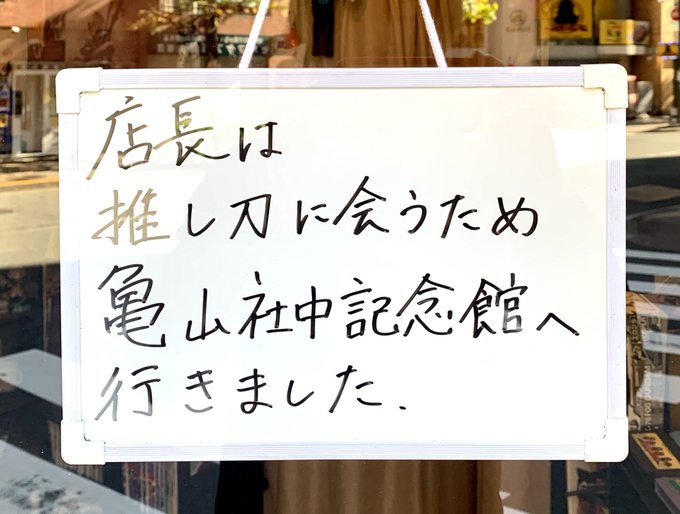 店長は
推し刀に会うため
亀山社中記念館へ
行きました.